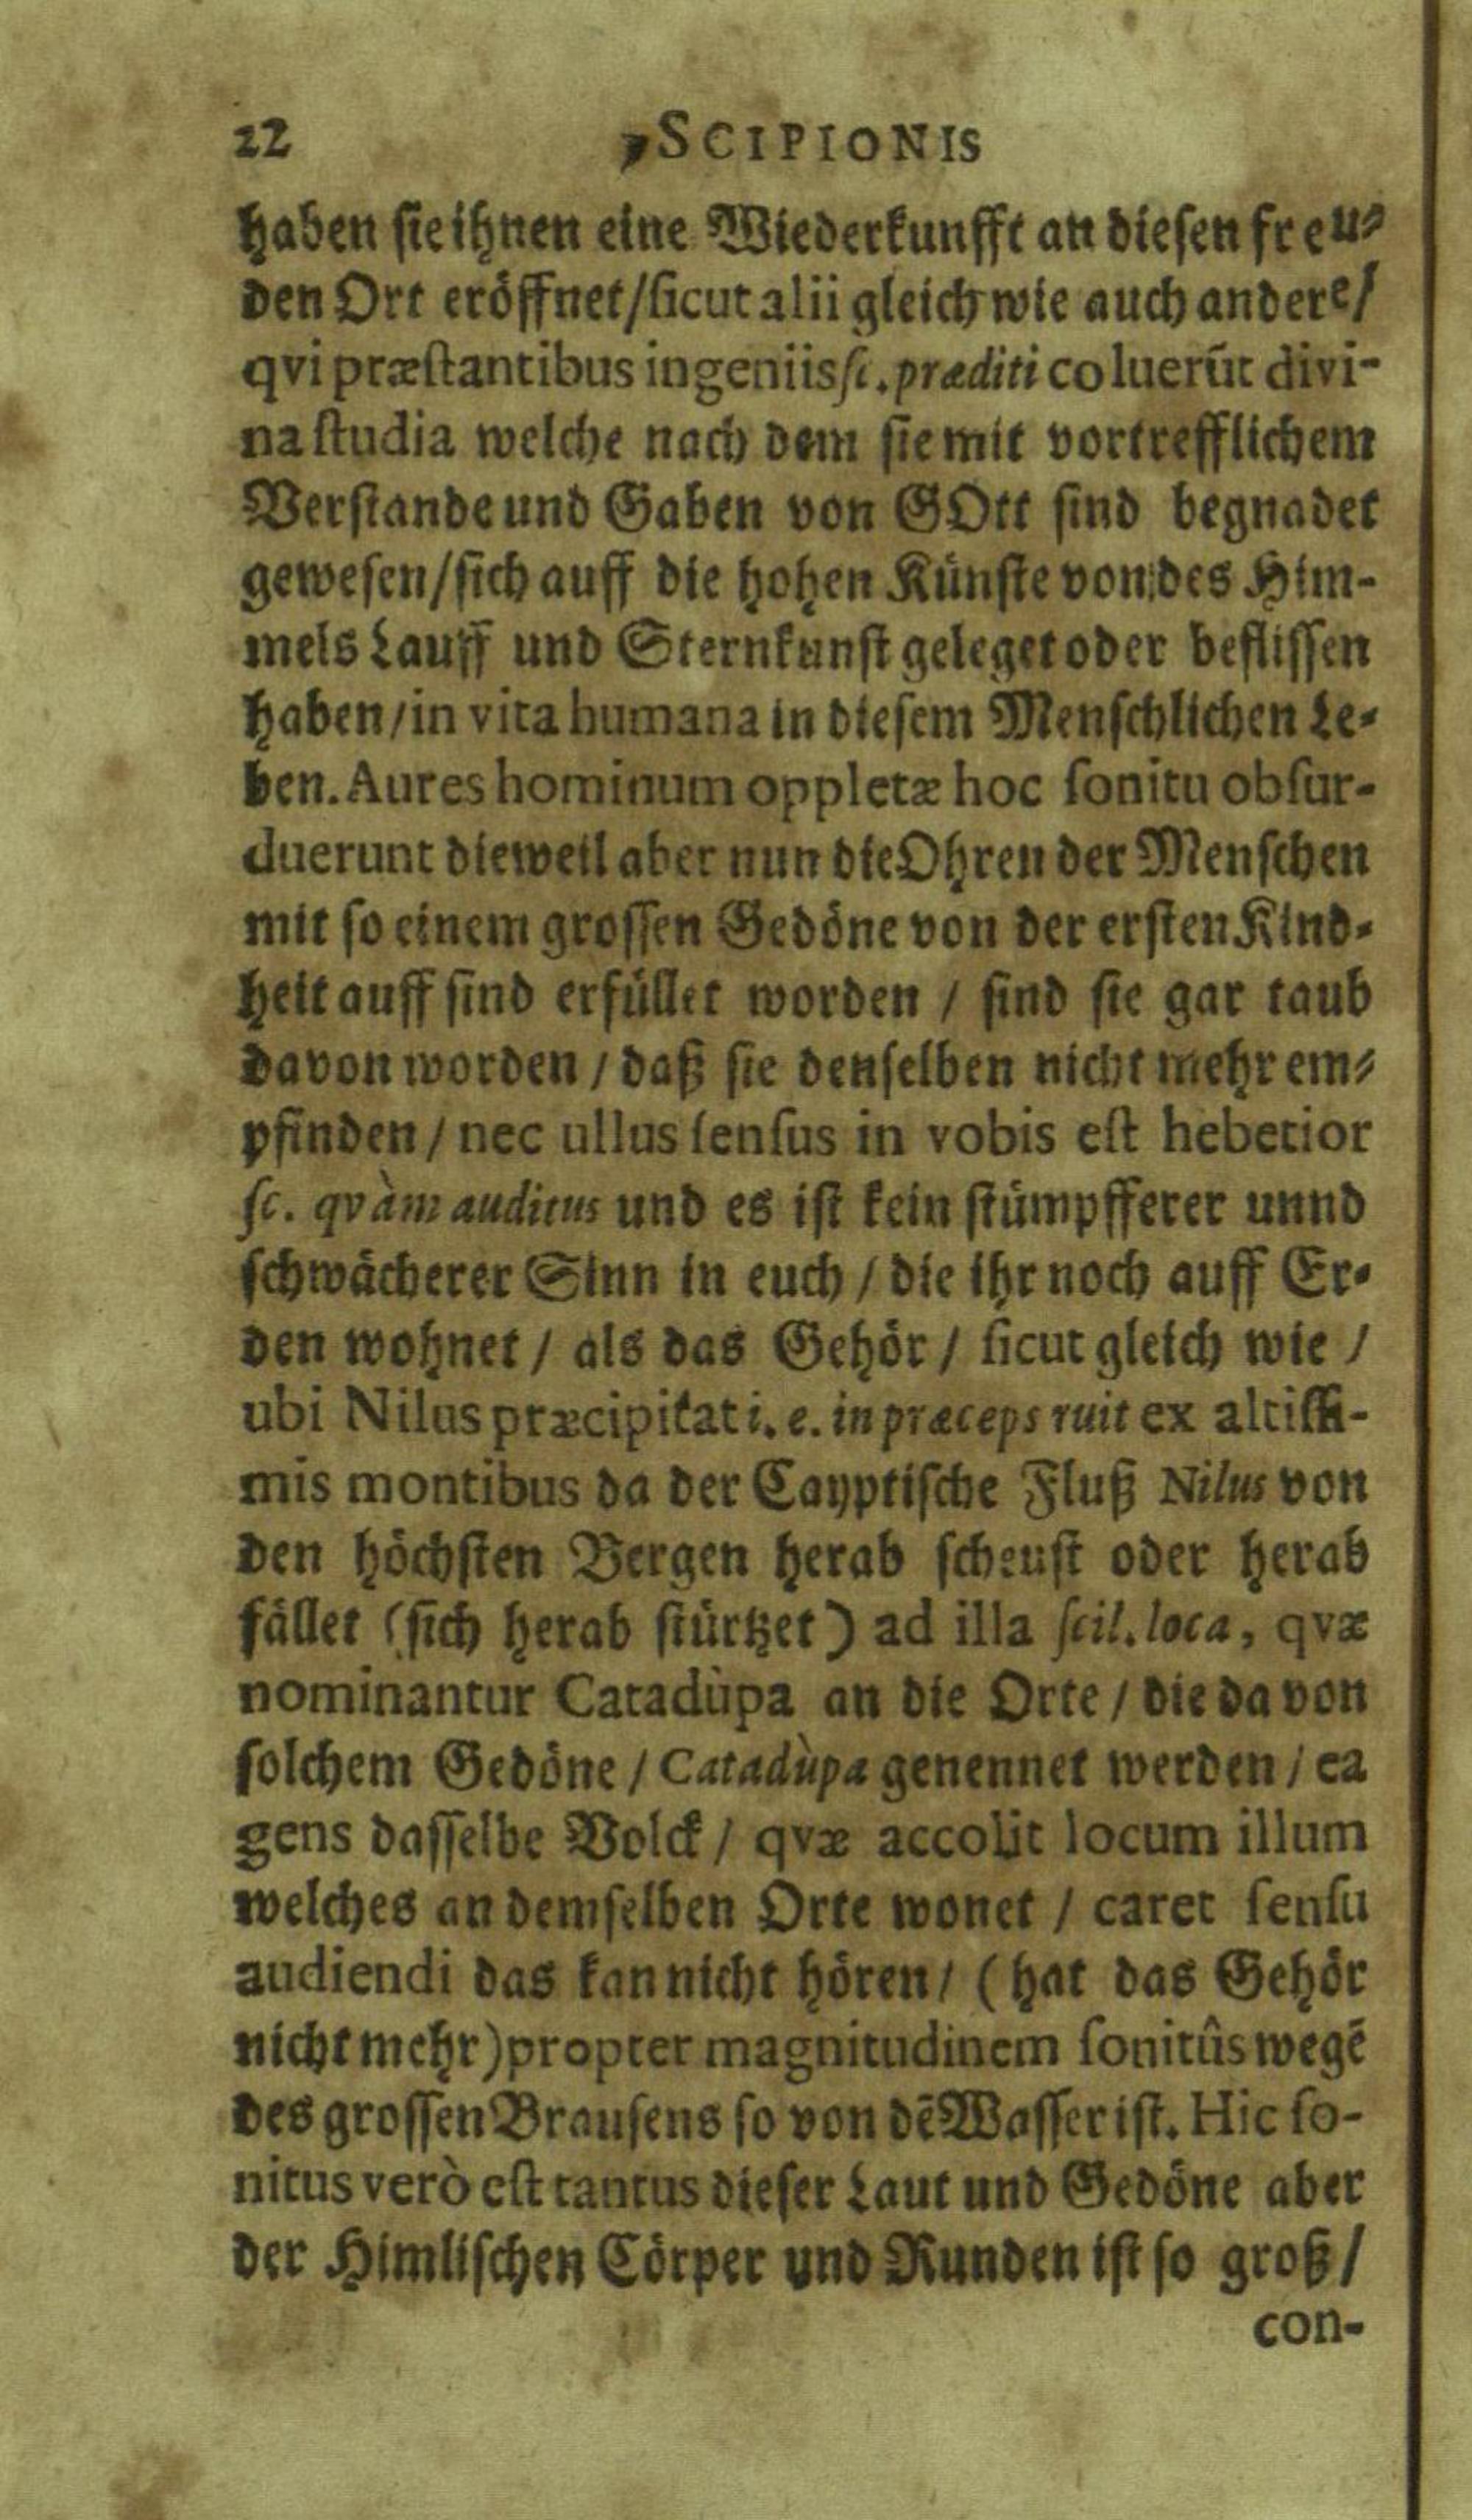 22 SCIPIONIS
haben sie ihnen eine Wiederkunfft an diesen freu-
den Ort eröffnet/ sicut alii gleich wie auch andere/
qvi præstantibus ingeniis sc. præditi coluerūt divi-
na studia welche nach dem sie mit vortrefflichem
Verstande und Gaben von GOtt sind begnadet
gewesen/ sich auff die hohen Künste von des Him-
mels Lauff und Sternkunst geleget oder beflissen
haben/ in vita humana in diesem Menschlichen Le-
ben. Aures hominum oppletæ hoc sonitu obsur-
duerunt dieweil aber nun die Ohren der Menschen
mit so einem grossen Gedöne von der ersten Kind-
heit auff sind erfüllet worden / sind sie gar taub
davon worden / daß sie denselben nicht mehr em-
pfinden / nec ullus sensus in vobis est hebetior
sc. qvàm auditus und es ist kein stümpfferer unnd
schwächerer Sinn in euch / die ihr noch auff Er-
den wohnet / als das Gehör / sicut gleich wie /
ubi Nilus præcipitat i. e. in præceps ruit ex altissi-
mis montibus da der Egyptische Fluß Nilus von
den höchsten Bergen herab scheust oder herab
fället (sich herab stürtzet) ad illa scil. loca, qvæ
nominantur Catadùpa an die Orte / die da von
solchem Gedöne / Catadùpa genennet werden / ea
gens dasselbe Volck / qvæ accolit locum illum
welches an demselben Orte wonet / caret sensu
audiendi das kan nicht hören / (hat das Gehör
nicht mehr) propter magnitudinem sonitûs wegē
des grossen Brausens so von dē Wasser ist. Hic so-
nitus verò est tantus dieser Laut und Gedöne aber
der Himlischen Cörper und Runden ist so groß /
con-